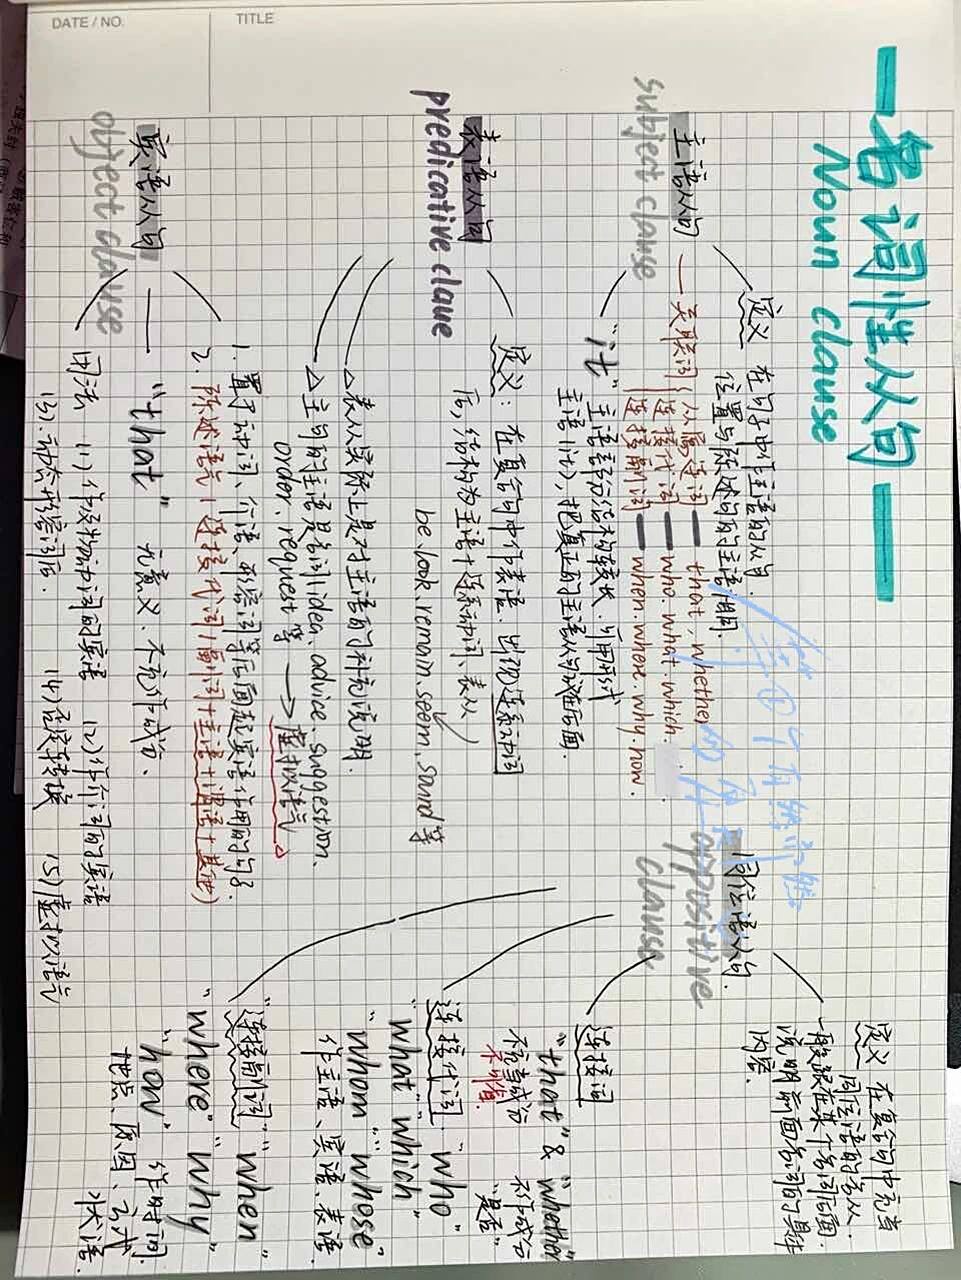 DATE / NO.
TITLE
名词性从句
Noun clause
主语从句
subject clause
定义 在句子中作主语的从句.
位置与陈述句的主语相同.
关联词
从属连词 — that, whether
连接代词 — who. what. which.
连接副词 — when. where. why. how.
"it" 主语部分说的较长, 可用形式
主语(it), 把真正的主语从句放在后面
表语从句
predicative claue
定义: 在复合句中作表语. 出现连系动词
后, 结构为主语+连系动词、表从
be. look. remain. seem. sound 等
△表从实际上是对主语的补充说明.
△主句的主语是名词 idea. advice. suggestion.
order. request 等 → 虚拟语气
宾语从句
object clause
1. 置于动词、介词、形容词等后面起宾语作用的句子.
2. 陈述语气(连接代词/副词+主语+谓语+其他)
"that" 无意义. 不充作成分.
用法 (1) 作及物动词的宾语 (2) 作介词的宾语
(3). 动态形容词后. (4) 否定转移 (5) 虚拟语气
同位语从句.
appositive
clause
定义 在复合句中充当
同位语的名从
一般跟在某个名词后面.
说明前面名词的具体
内容.
连接词
"that" & "whether"
不充当成分 不作成分
不可省. "是否"
连接代词 "who"
"what" "which"
"whom" "whose"
作主语、宾语、表语.
连接副词 "when"
"where" "why"
"how" 作时间.
地点、原因、方式
状语.